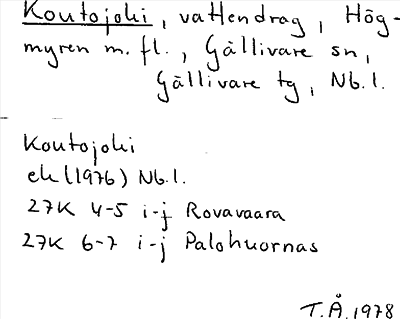 Koutojoki, vattendrag, Hög-
myren m. fl., Gällivare sn,
Gällivare tg, Nb. l.
Koutojoki
ek (1976) Nb. l.
27K 4-5 i-j Rovavaara
27K 6-7 i-j Palohuornas
T. Å. 1978